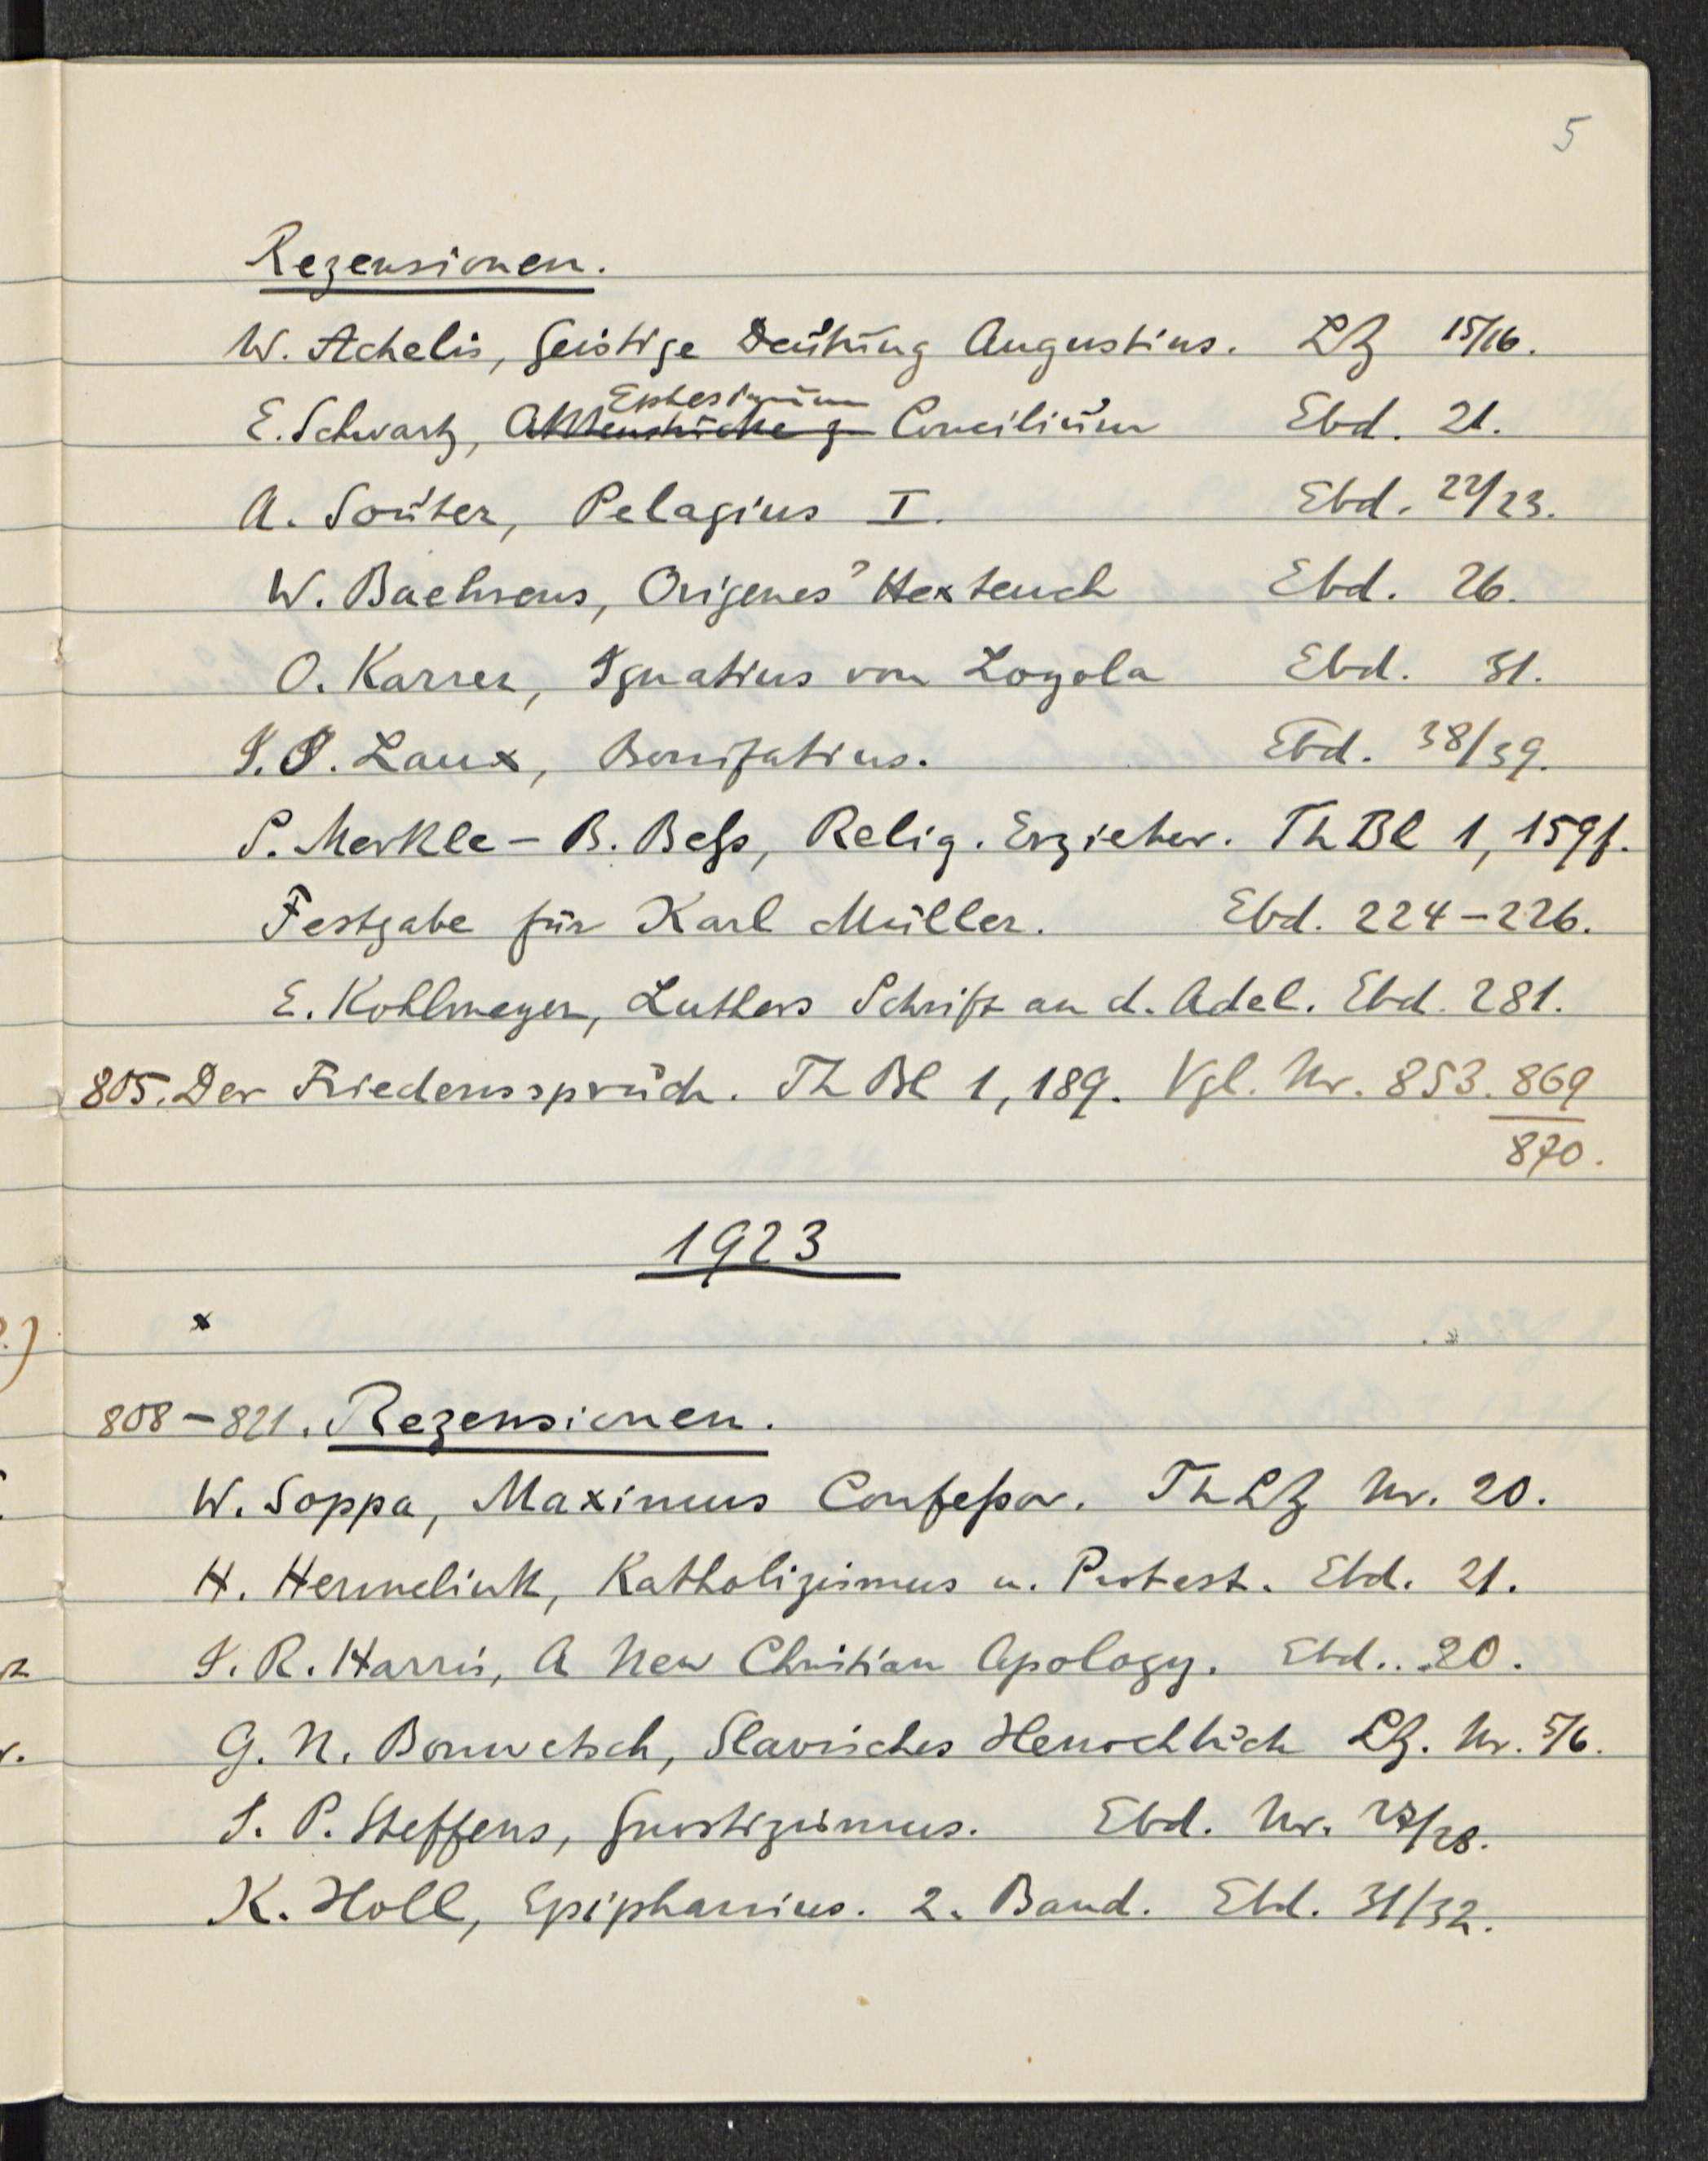 5
Rezensionen.
W. Achelis, Geistige Deutung Augustins. LZ 15/16.
Ephesinum
E. Schwartz, Aktenstücke z. Concilium Ebd. 21.
A. Souter, Pelagius I. Ebd. 22/23.
W. Baehrens, Origenes' Hexteuch Ebd. 26.
O. Karrer, Ignatius von Loyola Ebd. 31.
J. J. Laux, Bonifatius. Ebd. 38/39.
S. Merkle - B. Beß, Relig. Erzieher. Th Bl 1, 159f.
Festgabe für Karl Müller. Ebd. 224-226.
E. Kohlmeyer, Luthers Schrift an d. Adel. Ebd. 281.
805. Der Friedensspruch. Th Bl 1, 189. Vgl. Nr. 853. 869
870.
1923
x
808-821. Rezensionen.
W. Soppa, Maximus Confeßor. Th LZ Nr. 20.
H. Hermelink, Katholizismus u. Protest. Ebd. 21.
J. R. Harris, A New Christian Apology. Ebd. 20.
G. N. Bonwetsch, Slavisches Henochbuch LZ. Nr. 5/6.
J. P. Steffens, Gnostizismus. Ebd. Nr. 27/28.
K. Holl, Epiphanius. 2. Band. Ebd. 31/32.